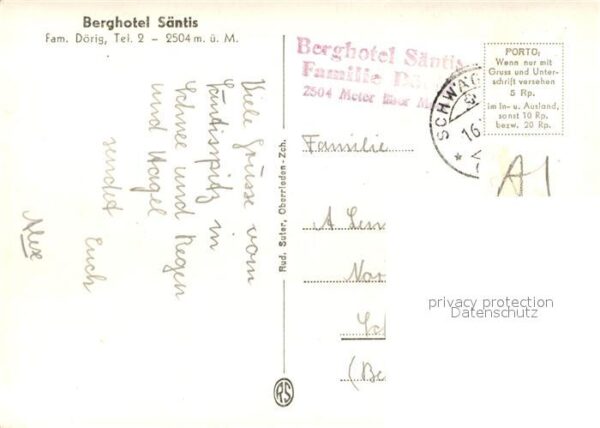 Berghotel Säntis
Fam. Dörig, Tel. 2 – 2504 m. ü. M.
Viele Grüsse vom
Säntisspitz in
Schnee und Regen
und Hagel
sendet Euch
Alex
Rud. Suter, Oberrieden-Zch.
RS
Berghotel Säntis
Familie
2504 Meter über M
SCHWÄG
16
PORTO:
Wenn nur mit
Gruss und Unter-
schrift versehen
5 Rp.
im In- u. Ausland,
sonst 10 Rp.
bezw. 20 Rp.
A1
Familie
A
(Be
privacy protection
Datenschutz